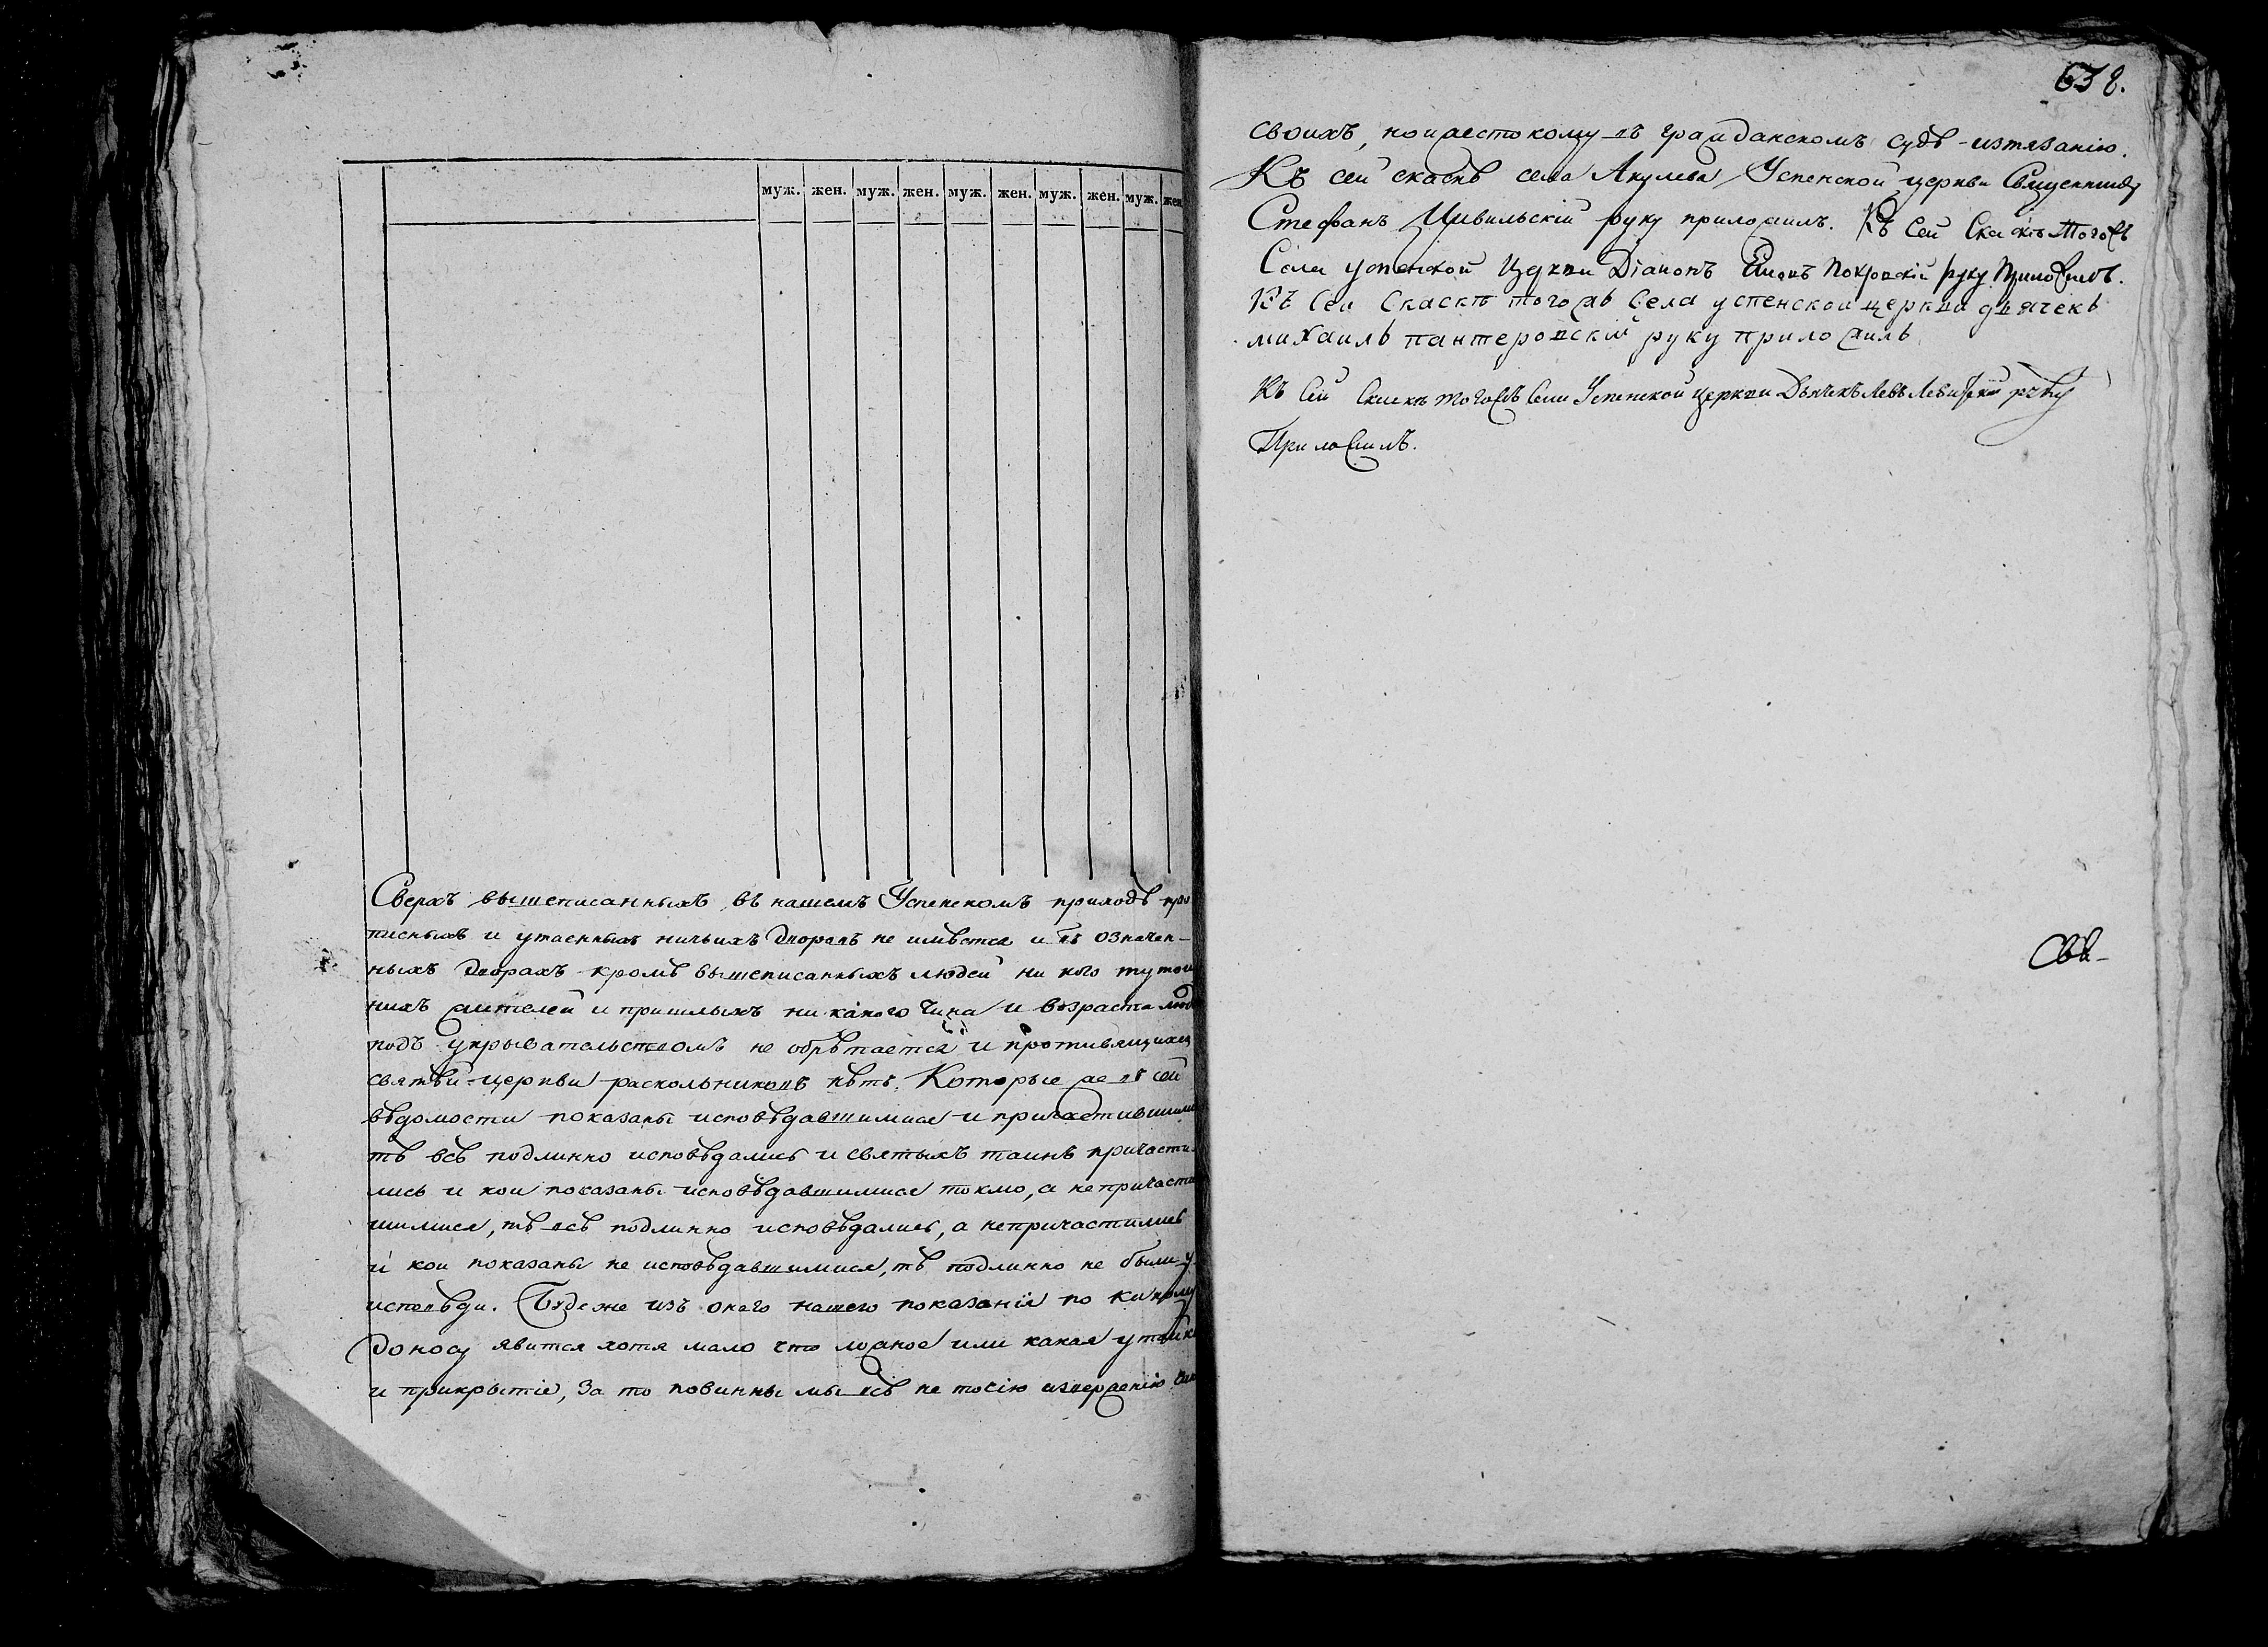 муж. жен. муж. жен. муж. жен. муж. жен. муж. жен
Сверхъ вышеписанныхъ въ нашемъ Успенскомъ приходѣ про
писныхъ и утаенныхъ ничьихъ дворовъ не имѣется и въ означен-
ныхъ дворахъ кромѣ вышеписанныхъ людей ни кого тутош
нихъ жителей и пришлыхъ ни какого чина и возраста люд
подъ укрывательствомъ не обрѣтается и противящихся
святѣй церкви раскольниковъ нѣтъ. Которые же въ сей
вѣдомости показаны исповѣдавшимися и причастившими
тѣ всѣ подлинно исповѣдались и святыхъ таинъ причасти-
лись и кои показаны исповѣдавшимися токмо, а непричасти
шимися, тѣ всѣ подлинно исповѣдались, а непричастились
и кои показаны не исповѣдавшимися, тѣ подлинно не были у
исповѣди. Буде же изъ онаго нашего показанія по какому
доносу явится хотя мало что ложное или какая утайка
и прикрытіе, за то повинны мы всѣ не точію изверженію чин
638.
своихъ, но и жестокому въ гражданскомъ судѣ истязанію.
Къ сей сказкѣ села Акулева Успенской церкви Священникъ
Стефанъ Цивильскій руку приложилъ. Къ сей Скаскѣ тогожъ
Села успенской Церкви Діаконъ Покровскій руку приложилъ.
Къ Сей Скаскѣ тогожь Села успенской церкви дьячекъ
михаилъ пантеровскій руку приложилъ
Къ Сей Скаскѣ тогожъ Села Успенской церкви Дьячекъ Левъ Левитскій руку
Приложилъ.
Свѣ-